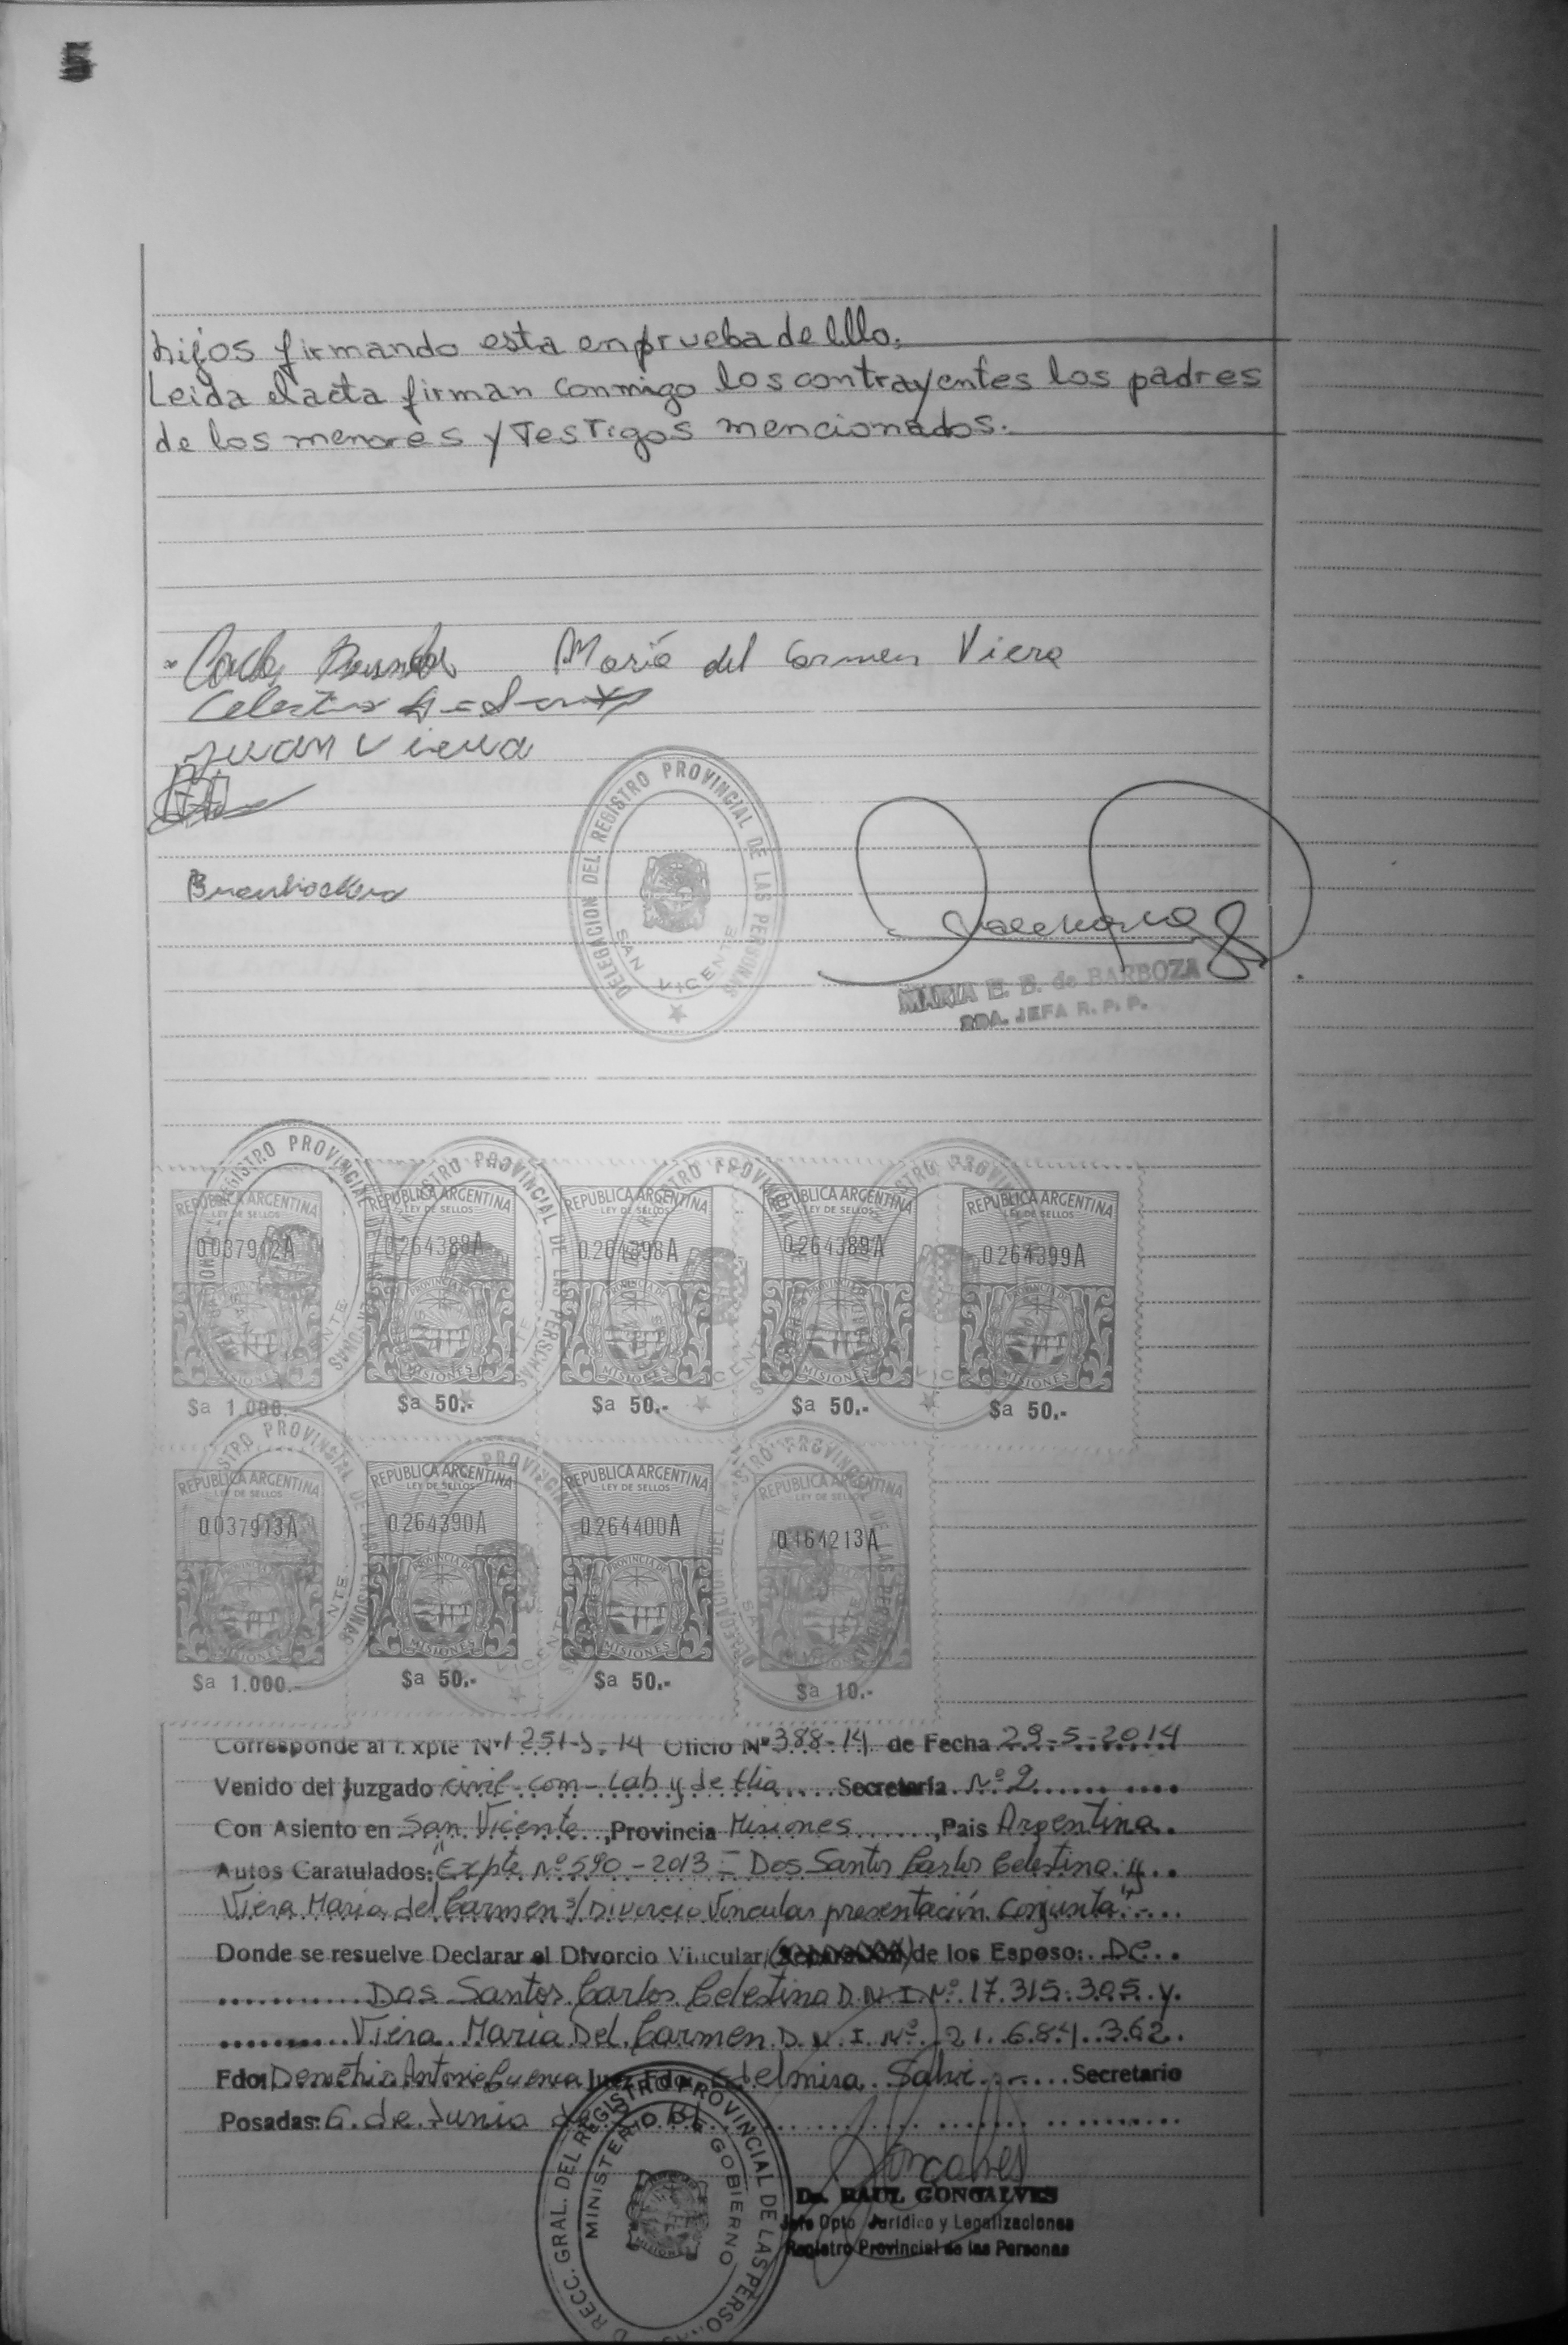 5
hijos firmando esta en prueba de ello.
Leida el acta firman conmigo los contrayentes los padres
de los menores y Testigos mencionados.
Maria del Carmen Viera
Juan Viera
DELEGACION DEL REGISTRO PROVINCIAL DE LAS PERSONAS
SAN VICENTE
MARIA E. B. de BARBOZA
JEFA R. P. P.
REPUBLICA ARGENTINA REPUBLICA ARGENTINA REPUBLICA ARGENTINA REPUBLICA ARGENTINA REPUBLICA ARGENTINA
LEY DE SELLOS LEY DE SELLOS LEY DE SELLOS LEY DE SELLOS LEY DE SELLOS
0037912A 0264388A 0264398A 0264389A 0264399A
MISIONES MISIONES MISIONES MISIONES MISIONES
$a 1.000.- $a 50.- $a 50.- $a 50.- $a 50.-
REPUBLICA ARGENTINA REPUBLICA ARGENTINA REPUBLICA ARGENTINA REPUBLICA ARGENTINA
LEY DE SELLOS LEY DE SELLOS LEY DE SELLOS LEY DE SELLOS
0037913A 0264390A 0264400A 0164213A
MISIONES MISIONES MISIONES MISIONES
$a 1.000.- $a 50.- $a 50.- $a 10.-
Corresponde al Expte Nº 1251-J-14 Oficio Nº 388-14 de Fecha 29-5-2014
Venido del Juzgado Civil-Com-Lab y de flia Secretaría Nº 2
Con Asiento en San Vicente, Provincia Misiones, Pais Argentina.
Autos Caratulados: "Expte Nº 590-2013 - Dos Santos Carlos Celestino y
Viera Maria del Carmen s/ Divorcio Vincular presentación Conjunta"
Donde se resuelve Declarar el Divorcio Vincular de los Esposo: De
Dos Santos Carlos Celestino D.N.I. Nº 17.315.305 y
Viera Maria Del Carmen D.N.I. Nº 21.684.362.
Fdo: Demetrio Antonio Cuenca Juez Fdo: Edelmira Salvi Secretario
Posadas: 6 de Junio de
DIRECC. GRAL. DEL REGISTRO PROVINCIAL DE LAS PERSONAS
MINISTERIO DE GOBIERNO
Dr. RAUL GONCALVES
Jefe Dpto Jurídico y Legalizaciones
Registro Provincial de las Personas